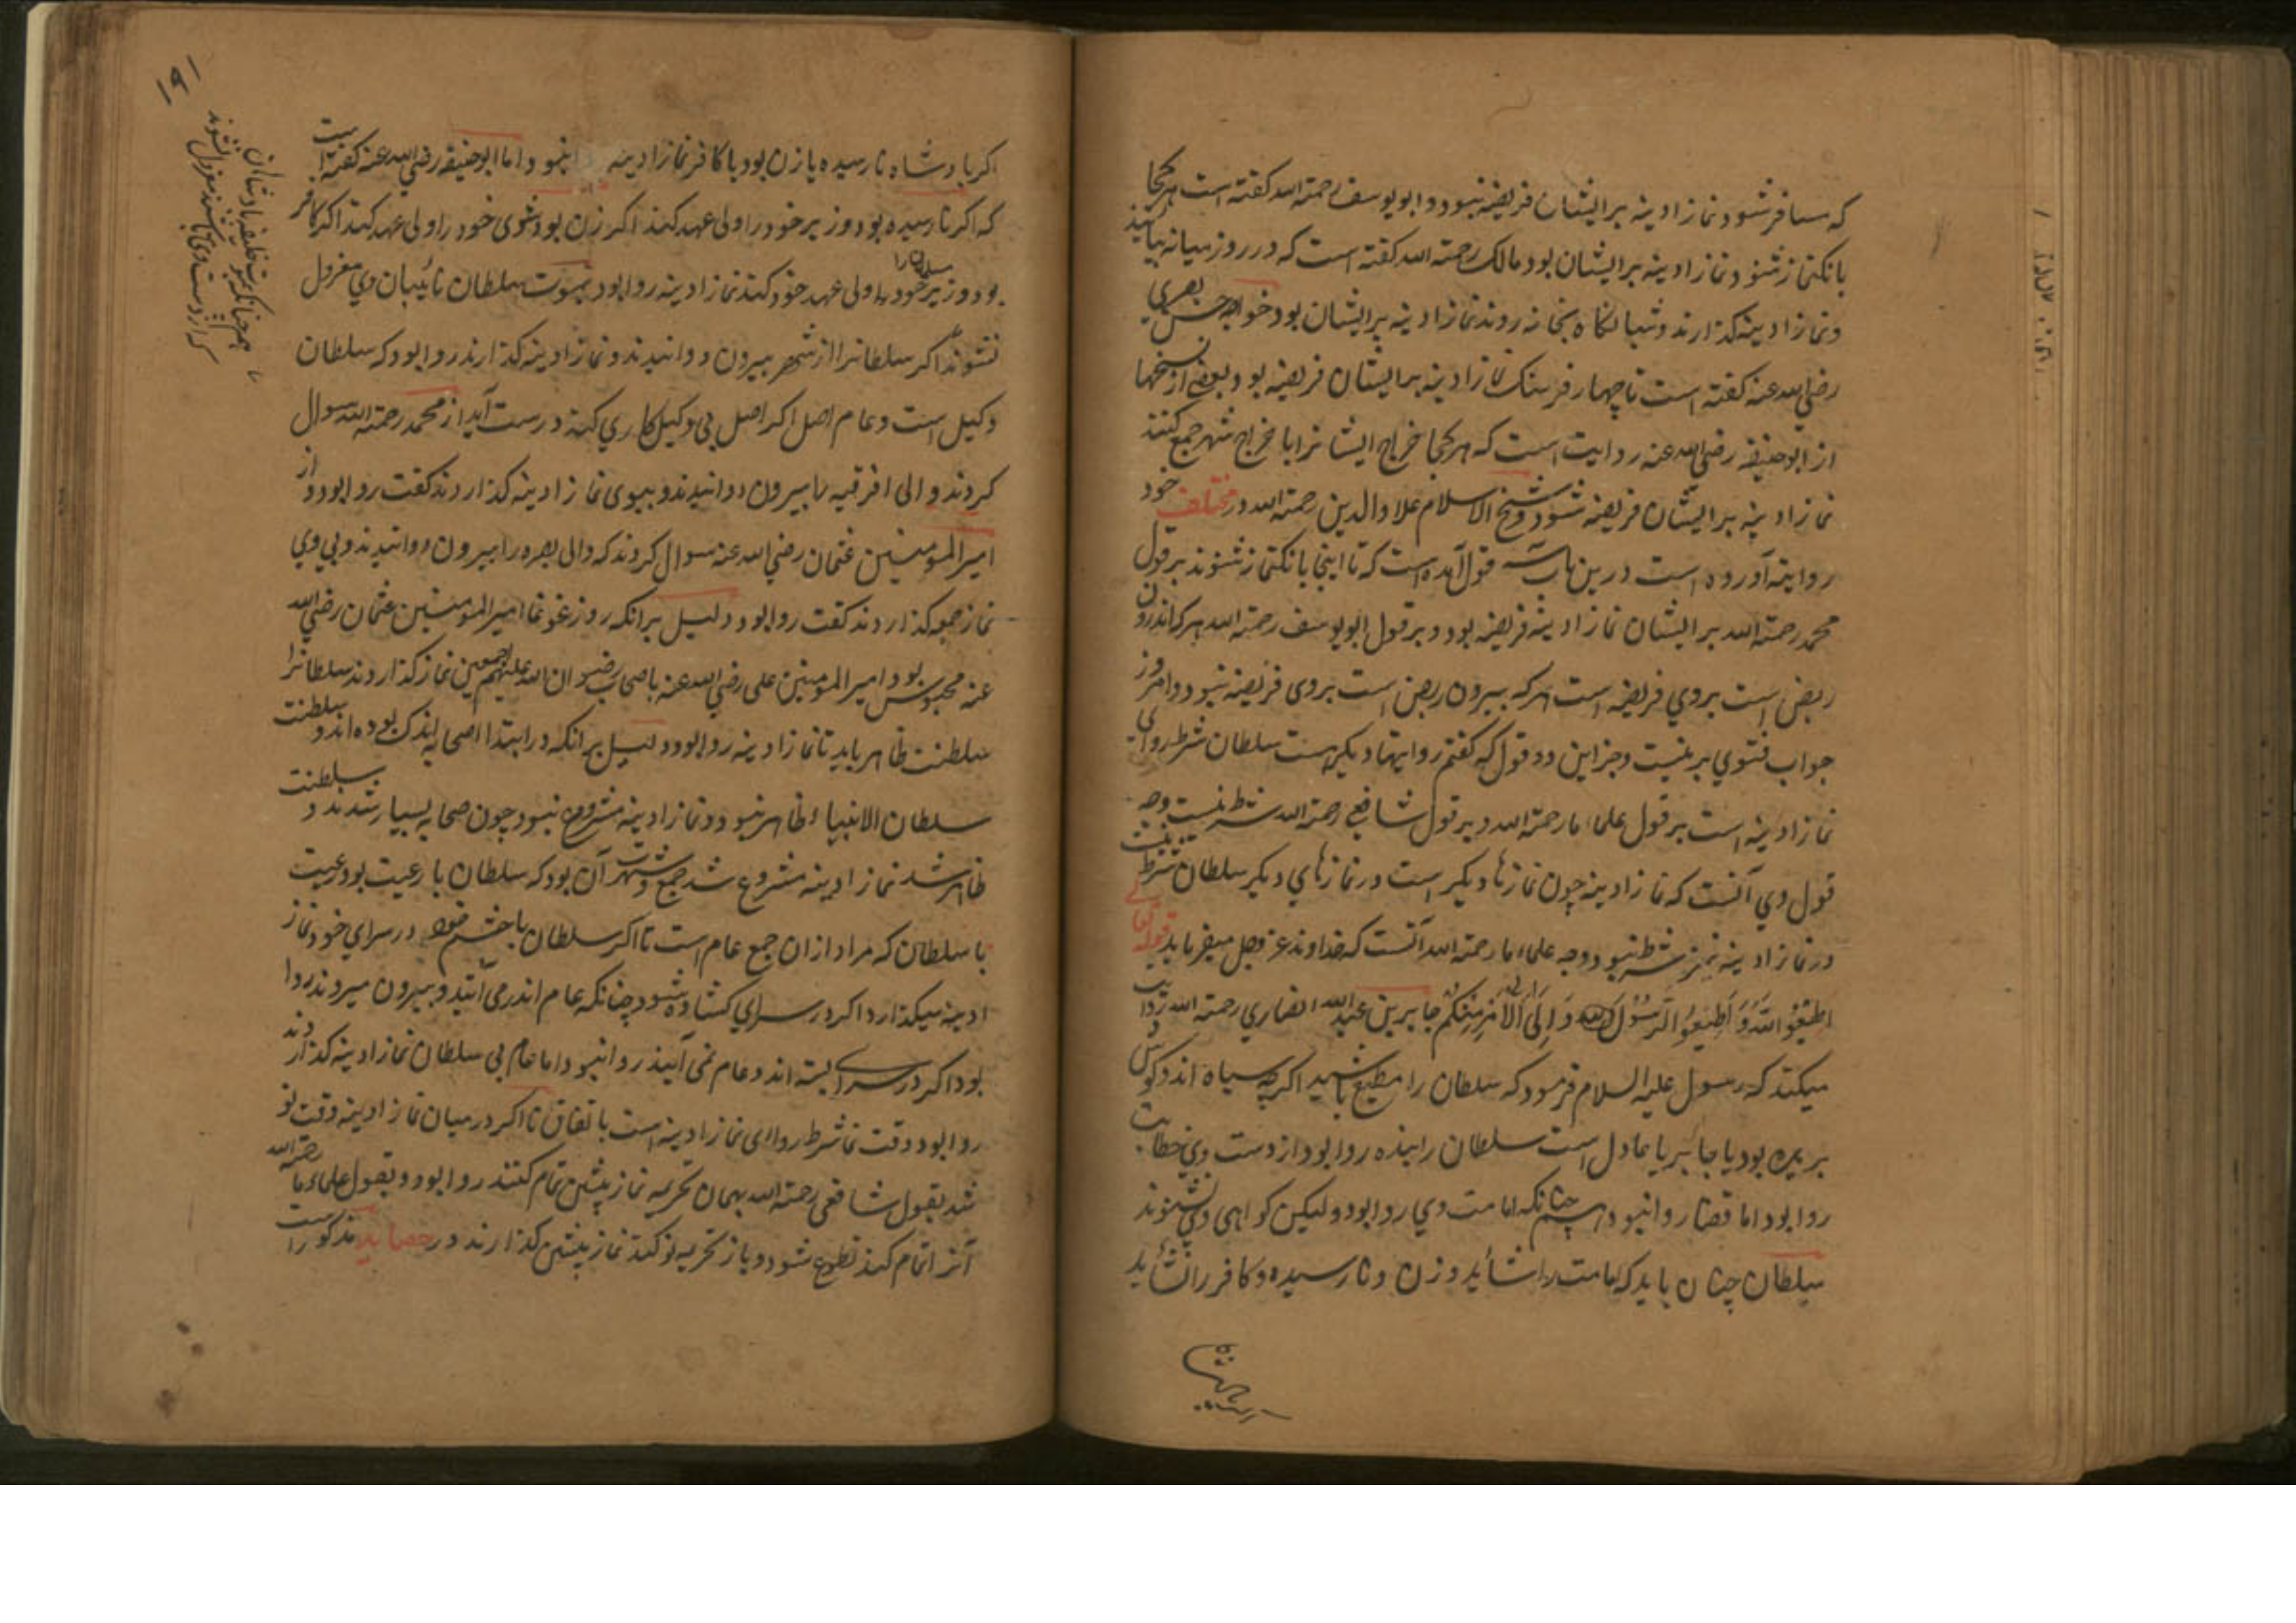 که مسافر شود نماز ادینه بر ایشان فریضه نبود و ابو یوسف رحمة الله کفته است هر کجا
بانکنماز شنود نماز ادینه بر ایشان بود مالک رحمة الله کفته است که در روز میانه بیایند
ونماز ادینه کذارند و شبانکاه بخانه روند نماز ادینه بر ایشان بود خواجه حسن بصری
رضی الله عنه کفته است تا چهار فرسنک نماز ادینه بر ایشان فریضه بود و بعضی از نسخها
از ابو حنیفه رضی الله عنه روایت است که هر کجا خراج ایشانرا با خراج شهر جمع کنند
نماز ادینه بر ایشان فریضه شود و شیخ الاسلام علاو الدین رحمة الله در مختلف خود
روایته آورده است درین باب سه قول آمده است که تا اینجا بانکنماز شنوند بر قول
محمد رحمة الله بر ایشان نماز ادینه فریضه بود و بر قول ابو یوسف رحمة الله هر که اندرون
ربض است بروی فریضه است هر که بیرون ربض است بروی فریضه نبود و امروز
جواب فتوی برینست و جز این دو قول که کفتم روایتهاء دیکر هست سلطان شرط روائی
نماز ادینه است بر قول علماء ما رحمة الله و بر قول شافعی رحمة الله شرط نیست وجه
قول وی آنست که نماز ادینه چون نمازهاء دیکر است در نمازهای دیکر سلطان شرط نیست
در نماز ادینه نیز شرط نبود و وجه علماء ما رحمة الله آنست که خداوند عز وجل میفرماید قوله تعالی
اطیعوا الله و اطیعوا الرسول و اولی الامر منکم جابر بن عبد الله انصاری رحمة الله روایت
میکند که رسول علیه السلام فرمود که سلطان را مطیع باشید اکر چه سیاه اند و کوش
بریده بود یا جابر یا عادل است سلطان را بنده روا بود از دست وی خطابت
روا بود اما قضا روا نبود همچنانکه امامت وی روا بود ولیکن کواهی وی نشنوند
سلطان چنان باید که امامت را شاید و زن و نارسیده و کافر را نشاید
۱۹۱
اکر بادشاه نارسیده یا زن بود یا کافر نماز ادینه روا نبود اما ابو حنیفه رضی الله عنه کفته است
که اکر نارسیده بود وزیر خود را ولی عهد کند اکر زن بود شوی خود را ولی عهد کند اکر کافر
بود وزیر خود مسلمان را ولی عهد خود کند نماز ادینه روا بود بموت سلطان نائبان وی معزول
نشوند اکر سلطانرا از شهر بیرون دوانیدند و نماز ادینه کذارند روا بود که سلطان
وکیل است و عام اصل اکر اصل بی وکیل کاری کند درست آید از محمد رحمة الله سوال
کردند والی افرقیه را بیرون دوانیدند و بیوی نماز ادینه کذاردند کفت روا بود و از
امیر المومنین عثمان رضی الله عنه سوال کردند که والی بصره را بیرون دوانیدند و بی وی
نماز جمعه کذاردند کفت روا بود و دلیل برانکه روز غوغا امیر المومنین عثمان رضی الله
عنه محبوس بود و امیر المومنین علی رضی الله عنه با صحابه رضوان الله علیهم اجمعین نماز کذاردند سلطانرا
سلطنت ظاهر باید تا نماز ادینه روا بود و دلیل برانکه در ابتدا صحابه اندک بوده اند و سلطنت
سلطان الانبیاء ظاهر نبود و نماز ادینه مشروع نبود چون صحابه بسیار شدند و سلطنت
ظاهر شد نماز ادینه مشروع شد جمع و شهر آن بود که سلطان با رعیت بود رعیت
با سلطان که مراد ازان جمع عام است تا اکر سلطان با حشم خود در سرای خود نماز
ادینه میکذارد اکر در سرای کشاده شود چنانکه عام اندر می آیند و بیرون میروند روا
بود اکر در سرای بسته اند و عام نمی آیند روا نبود اما عام بی سلطان نماز ادینه کذارند
روا بود وقت نماز شرط روائی نماز ادینه است باتفاق تا اکر در میان نماز ادینه وقت نو
شد بقول شافعی رحمة الله بهمان تحریمه نماز پیشین تمام کنند روا بود و بقول علماء ما رحمة الله
آنرا تمام کند تطوع شود و باز تحریمه نو کند نماز پیشین کذارند در حصایل مذکور است